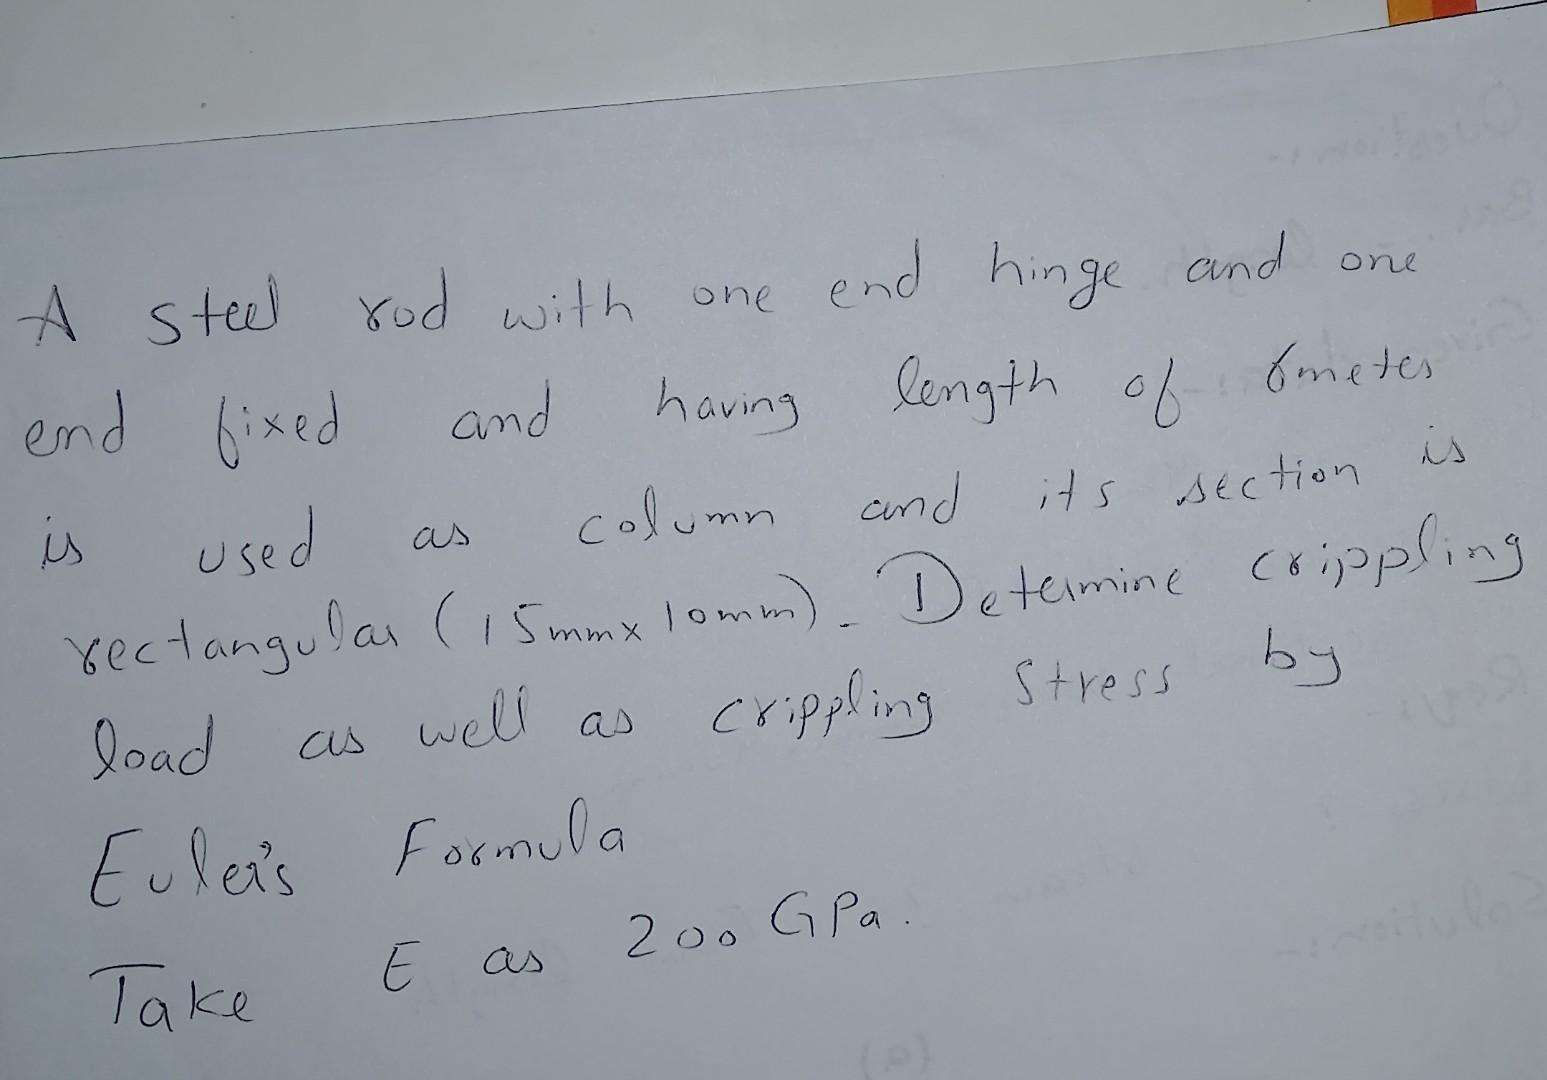 A steel rod with one end hinge and one
end fixed and having length of 6meter
is used as column and its section is
rectangular (15mmx10mm). Determine crippling
load as well as crippling stress by
Euler's Formula
Take E as 200 GPa.
(a)